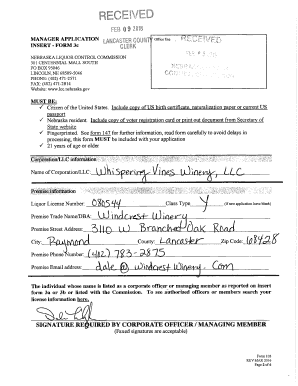 RECEIVED
FEB 09 2018
MANAGER APPLICATION
INSERT - FORM 3c
LANCASTER COUNTY
CLERK
Office Use
RECEIVED
NEBRASKA LIQUOR CONTROL COMMISSION
301 CENTENNIAL MALL SOUTH
PO BOX 95046
LINCOLN, NE 68509-5046
PHONE: (402) 471-2571
FAX: (402) 471-2814
Website: www.lcc.nebraska.gov
MUST BE:
✓ Citizen of the United States. Include copy of US birth certificate, naturalization paper or current US
passport
✓ Nebraska resident. Include copy of voter registration card or print out document from Secretary of
State website
✓ Fingerprinted. See form 147 for further information, read form carefully to avoid delays in
processing, this form MUST be included with your application
✓ 21 years of age or older
Corporation/LLC information
Name of Corporation/LLC: Whispering Vines Winery, LLC
Premise information
Liquor License Number: 080544 Class Type Y (if new application leave blank)
Premise Trade Name/DBA: Windcrest Winery
Premise Street Address: 3110 W Branched Oak Road
City: Raymond County: Lancaster Zip Code: 68428
Premise Phone Number: (402) 783-2875
Premise Email address: dale@windcrestwinery.com
The individual whose name is listed as a corporate officer or managing member as reported on insert
form 3a or 3b or listed with the Commission. To see authorized officers or members search your
license information here.
SIGNATURE REQUIRED BY CORPORATE OFFICER / MANAGING MEMBER
(Faxed signatures are acceptable)
Form 103
REV MAR 2016
Page 2 of 6